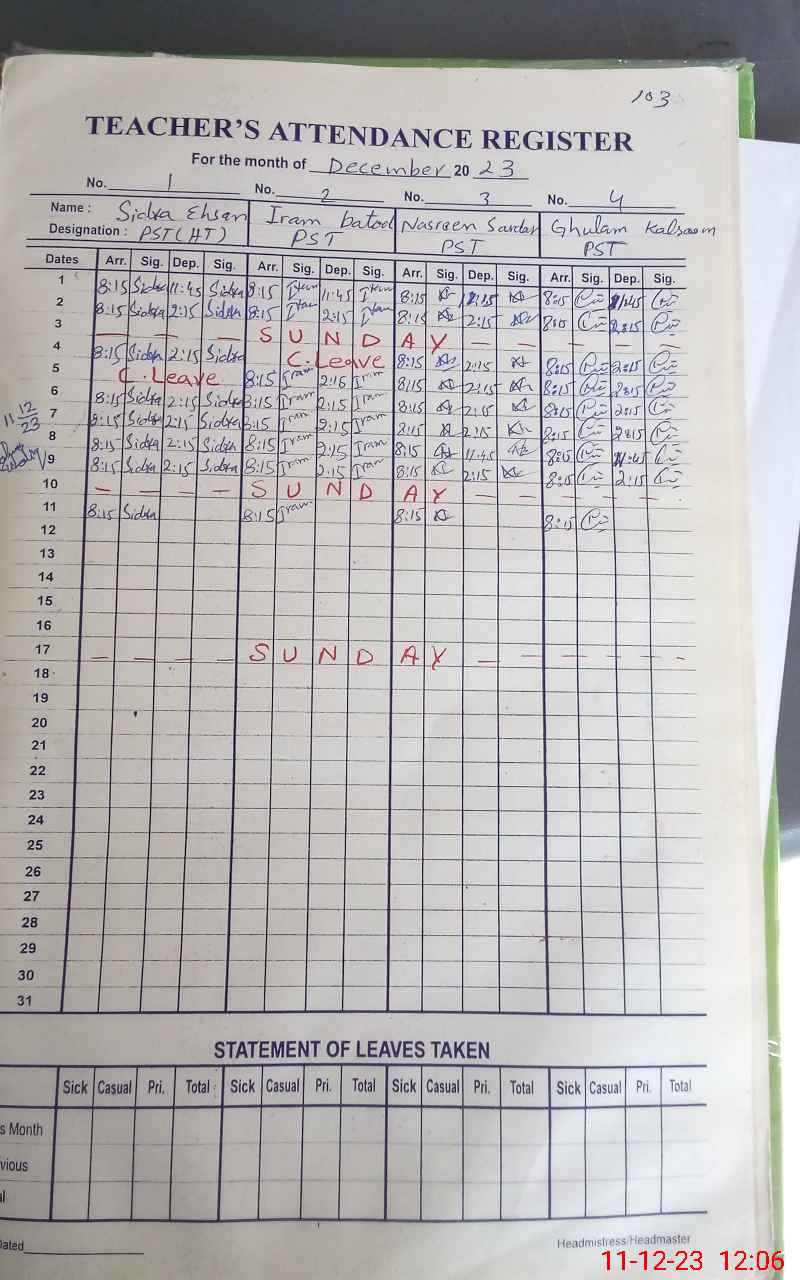 103
TEACHER'S ATTENDANCE REGISTER
For the month of December 2023
No. 1 No. 2 No. 3 No. 4
Name : Sidra Ehsan Iram batool Nasreen Sardar Ghulam Kalsoom
Designation : PST(HT) PST PST PST
Dates Arr. Sig. Dep. Sig. Arr. Sig. Dep. Sig. Arr. Sig. Dep. Sig. Arr. Sig. Dep. Sig.
1 8:15 Sidra 11:45 Sidra 8:15 Iram 11:45 Iram 8:15 8:15 11:45
2 8:15 Sidra 2:15 Sidra 8:15 Iram 2:15 Iram 8:15 2:15 8:15 2:15
3 — — — — S U N D A Y — — — — — —
4 8:15 Sidra 2:15 Sidra C. Leave 8:15 2:15 8:15 2:15
5 C. Leave 8:15 Iram 2:15 Iram 8:15 2:15 8:15 2:15
6 8:15 Sidra 2:15 Sidra 8:15 Iram 2:15 Iram 8:15 2:15 8:15 2:15
11-12
23
7 8:15 Sidra 2:15 Sidra 8:15 Iram 2:15 Iram 8:15 2:15 8:15 2:15
8 8:15 Sidra 2:15 Sidra 8:15 Iram 2:15 Iram 8:15 11:45 8:15 11:45
9 8:15 Sidra 2:15 Sidra 8:15 Iram 2:15 Iram 8:15 2:15 8:15 2:15
10 — — — — S U N D A Y — — — — — —
11 8:15 Sidra 8:15 Iram 8:15 8:15
12
13
14
15
16
17 — — — — S U N D A Y — — — — — -
18
19
20
21
22
23
24
25
26
27
28
29
30
31
STATEMENT OF LEAVES TAKEN
Sick Casual Pri. Total Sick Casual Pri. Total Sick Casual Pri. Total Sick Casual Pri. Total
s Month
vious
al
Dated
Headmistress/Headmaster
11-12-23 12:06